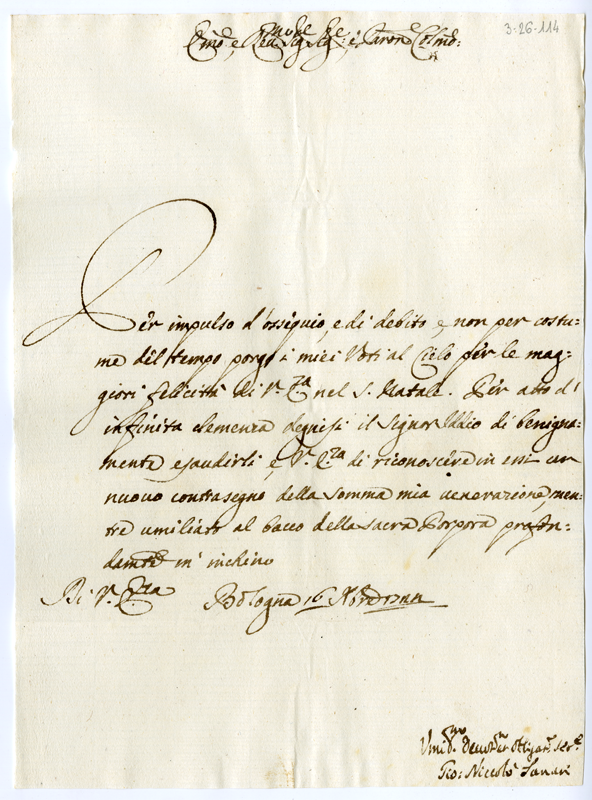 3-26-114
Em̃o e Reũmo Sig.re Sig.re e Pa'rone Colm̃o:
Per impulso d'ossequio, e di debito e, non per costu-
me del tempo porgo i miei Voti al Cielo per le mag-
giori felicittà di V. E.za nel S. Natale. Per atto d'
infinita clemenza degnisi il Signor Iddio di benigna-
mente esaudirli e, V. E.za di riconoscere in essi un
nuovo contrasegno della somma mia venerazione, men-
tre umiliato al bacco della sacra Porpora profon-
damte m'inchino
Di V. E.za Bologna 16
Umil.mo Devot.mo Obligat. ser.e
Gio: Niccolò Tanari